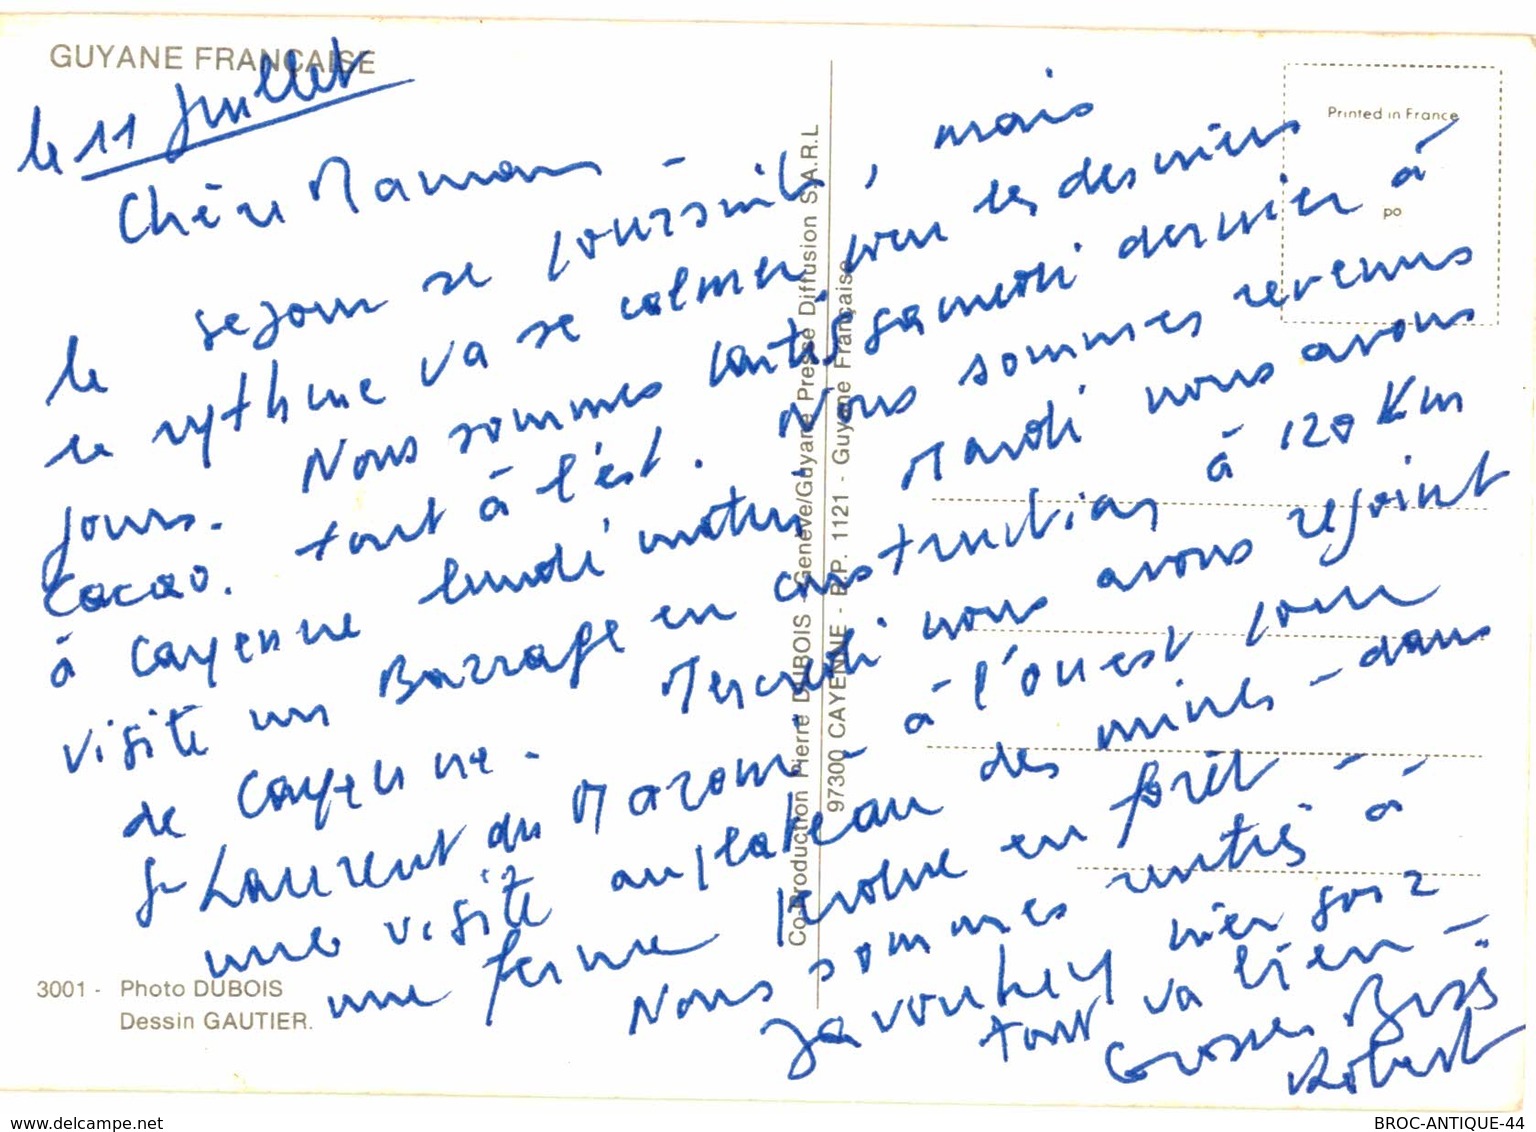 GUYANE FRANÇAISE
le 11 Juillet
Chère Maman -
le séjour se poursuit, mais
le rythme va se calmer pour les derniers
jours. Nous sommes partis samedi dernier à
Cacao. tout à l'est. Nous sommes revenus
à Cayenne lundi matin Mardi nous avons
visité un Barrage en construction à 120 Km
de Cayenne. Mercredi nous avons rejoint
St Laurent du Maroni - à l'ouest pour
une visite au plateau des mines - dans
une ferme perdue en forêt -
Nous sommes rentrés à
Javouhey hier soir
tout va bien -
Grosses Bises
Robert
Printed in France
po
Co-Production Pierre DUBOIS - Genève/Guyane Presse Diffusion S.A.R.L
97300 CAYENNE - B.P. 1121 - Guyane Française
3001 - Photo DUBOIS
Dessin GAUTIER.
www.delcampe.net
BROC-ANTIQUE-44